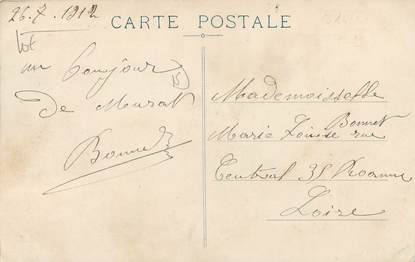 26.7.1912
CARTE POSTALE
un bonjour
de Murat
Bonnet
Mademoiselle
Bonnet
Marie Louise rue
Central 35 Roanne
Loire